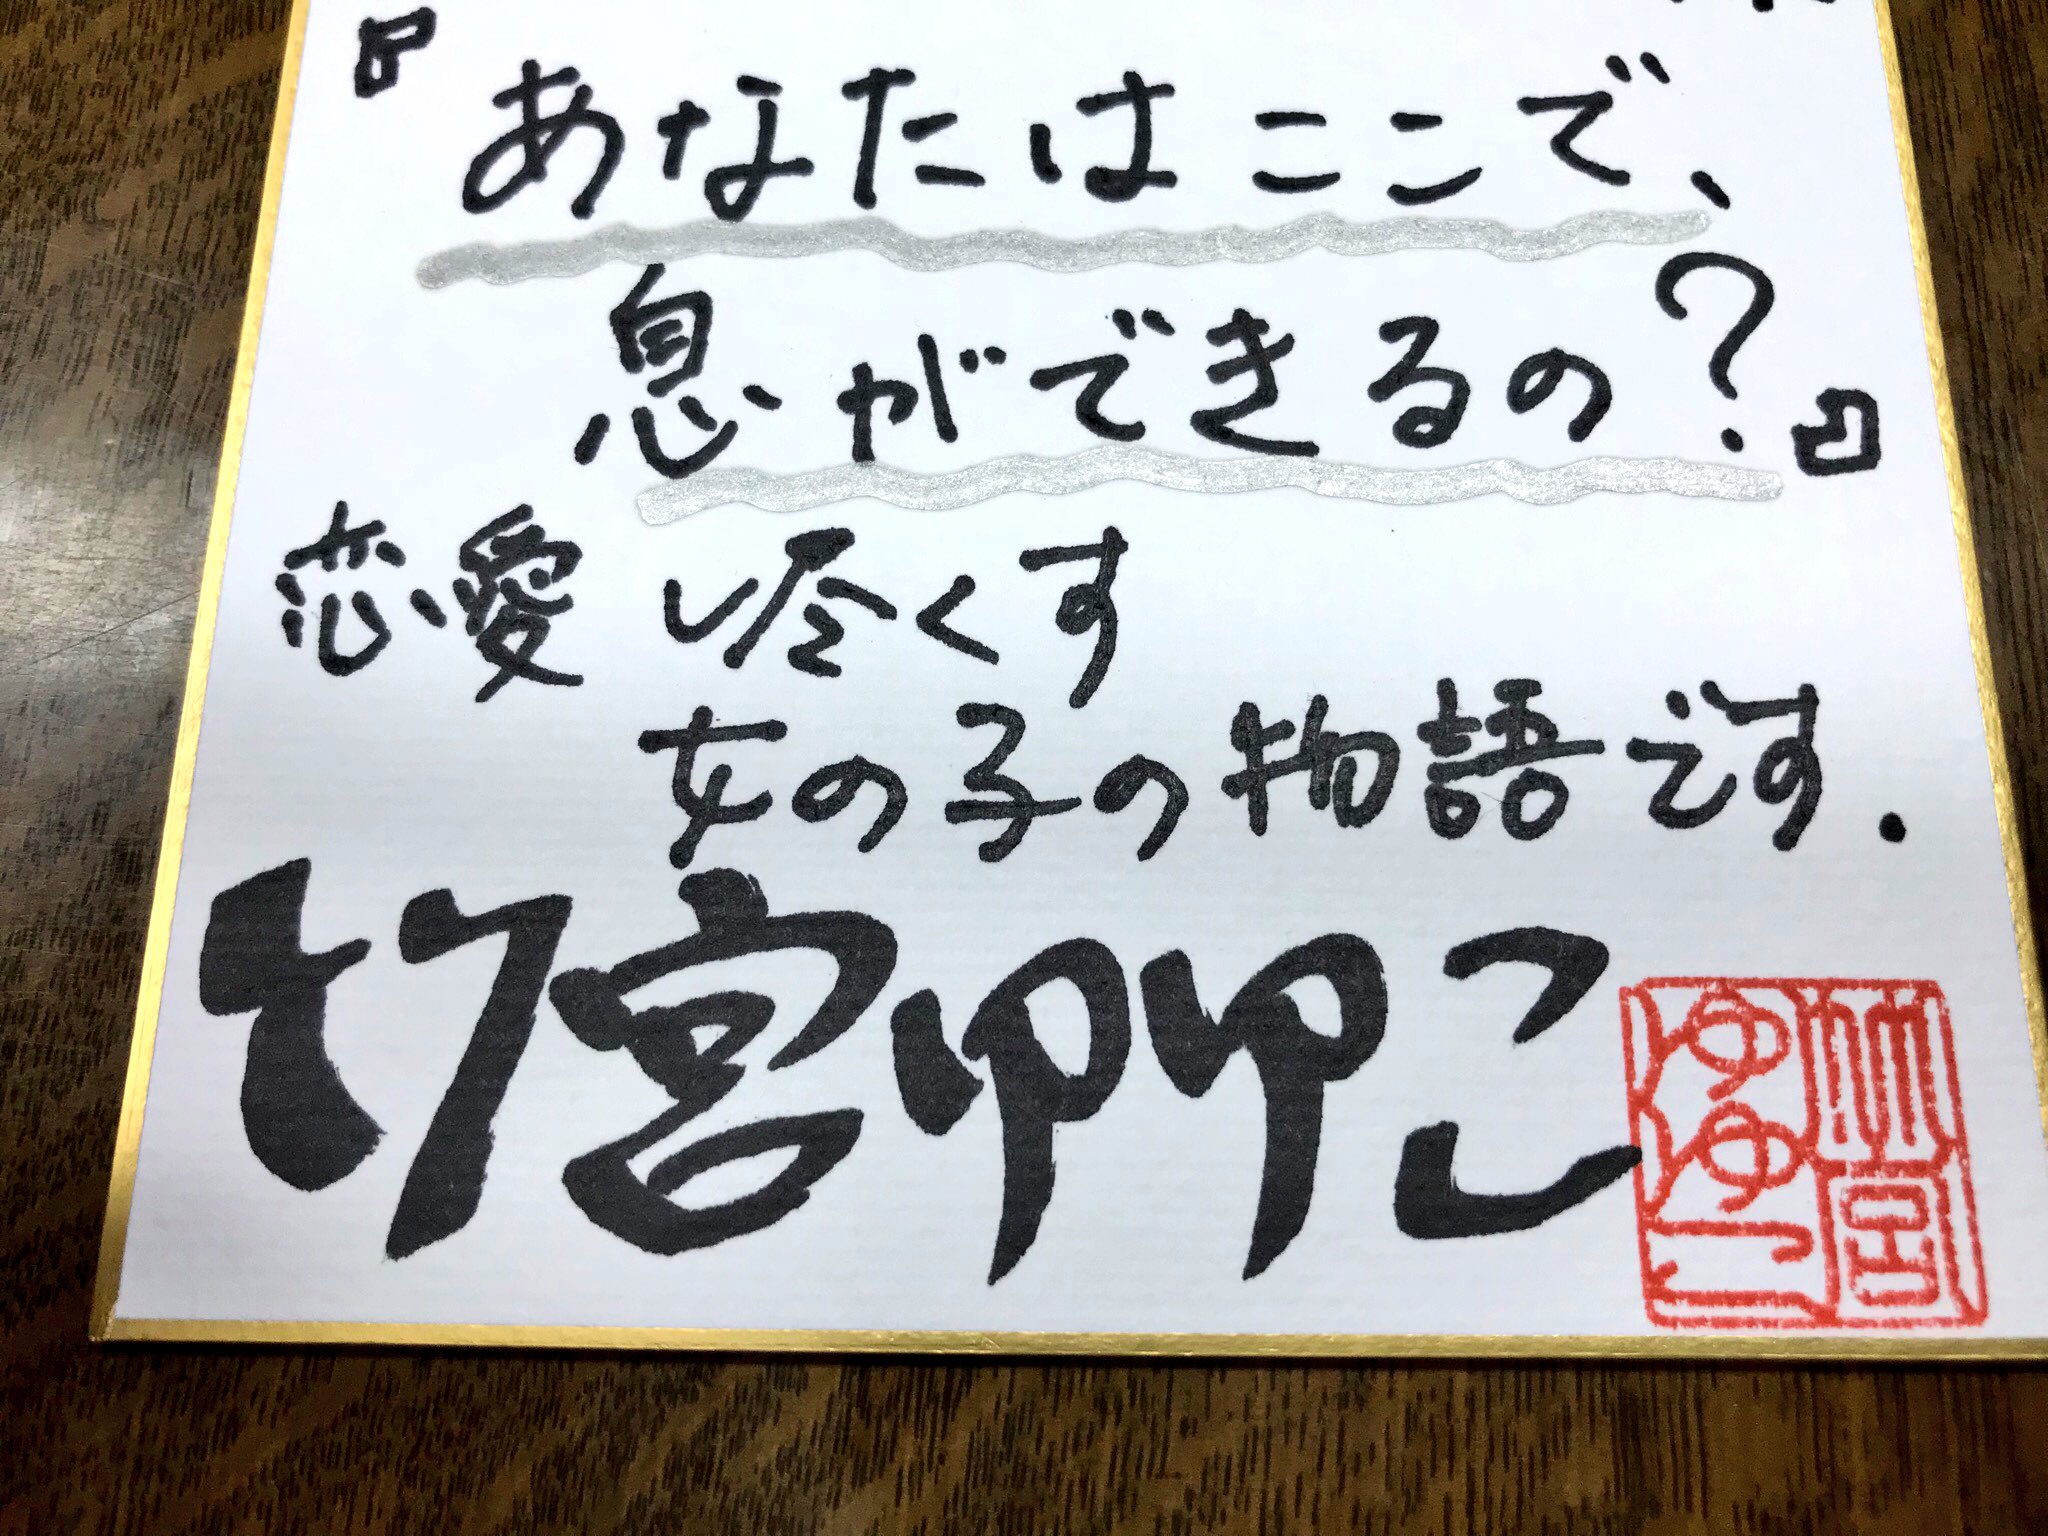 『あなたはここで、
息ができるの？』
恋愛し尽くす
女の子の物語です.
竹宮ゆゆこ
竹宮
ゆゆこ